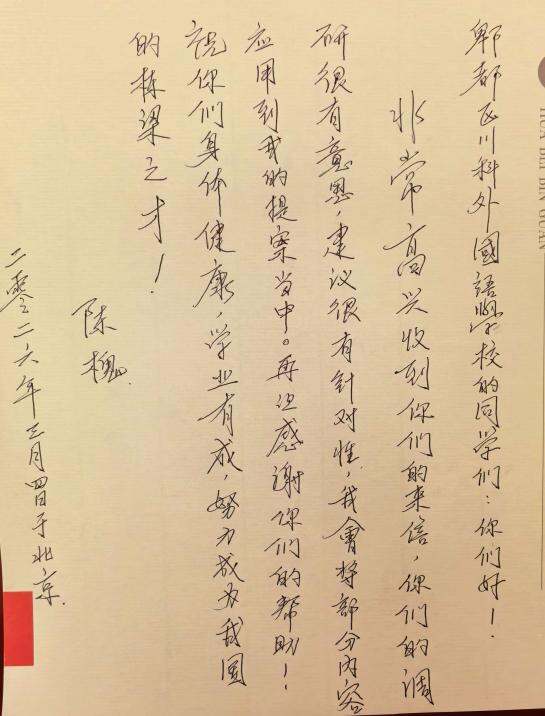 郫都区川科外國語學校的同学们：你们好！
非常高兴收到你们的来信，你们的调
研很有意思，建议很有针对性，我會将部分内容
应用到我的提案当中。再次感谢你们的帮助！
祝你们身体健康，学业有成，努力成为我國
的栋梁之才！
陈槐
二零二六年三月四日于北京.
HUA BEI BIN GUAN